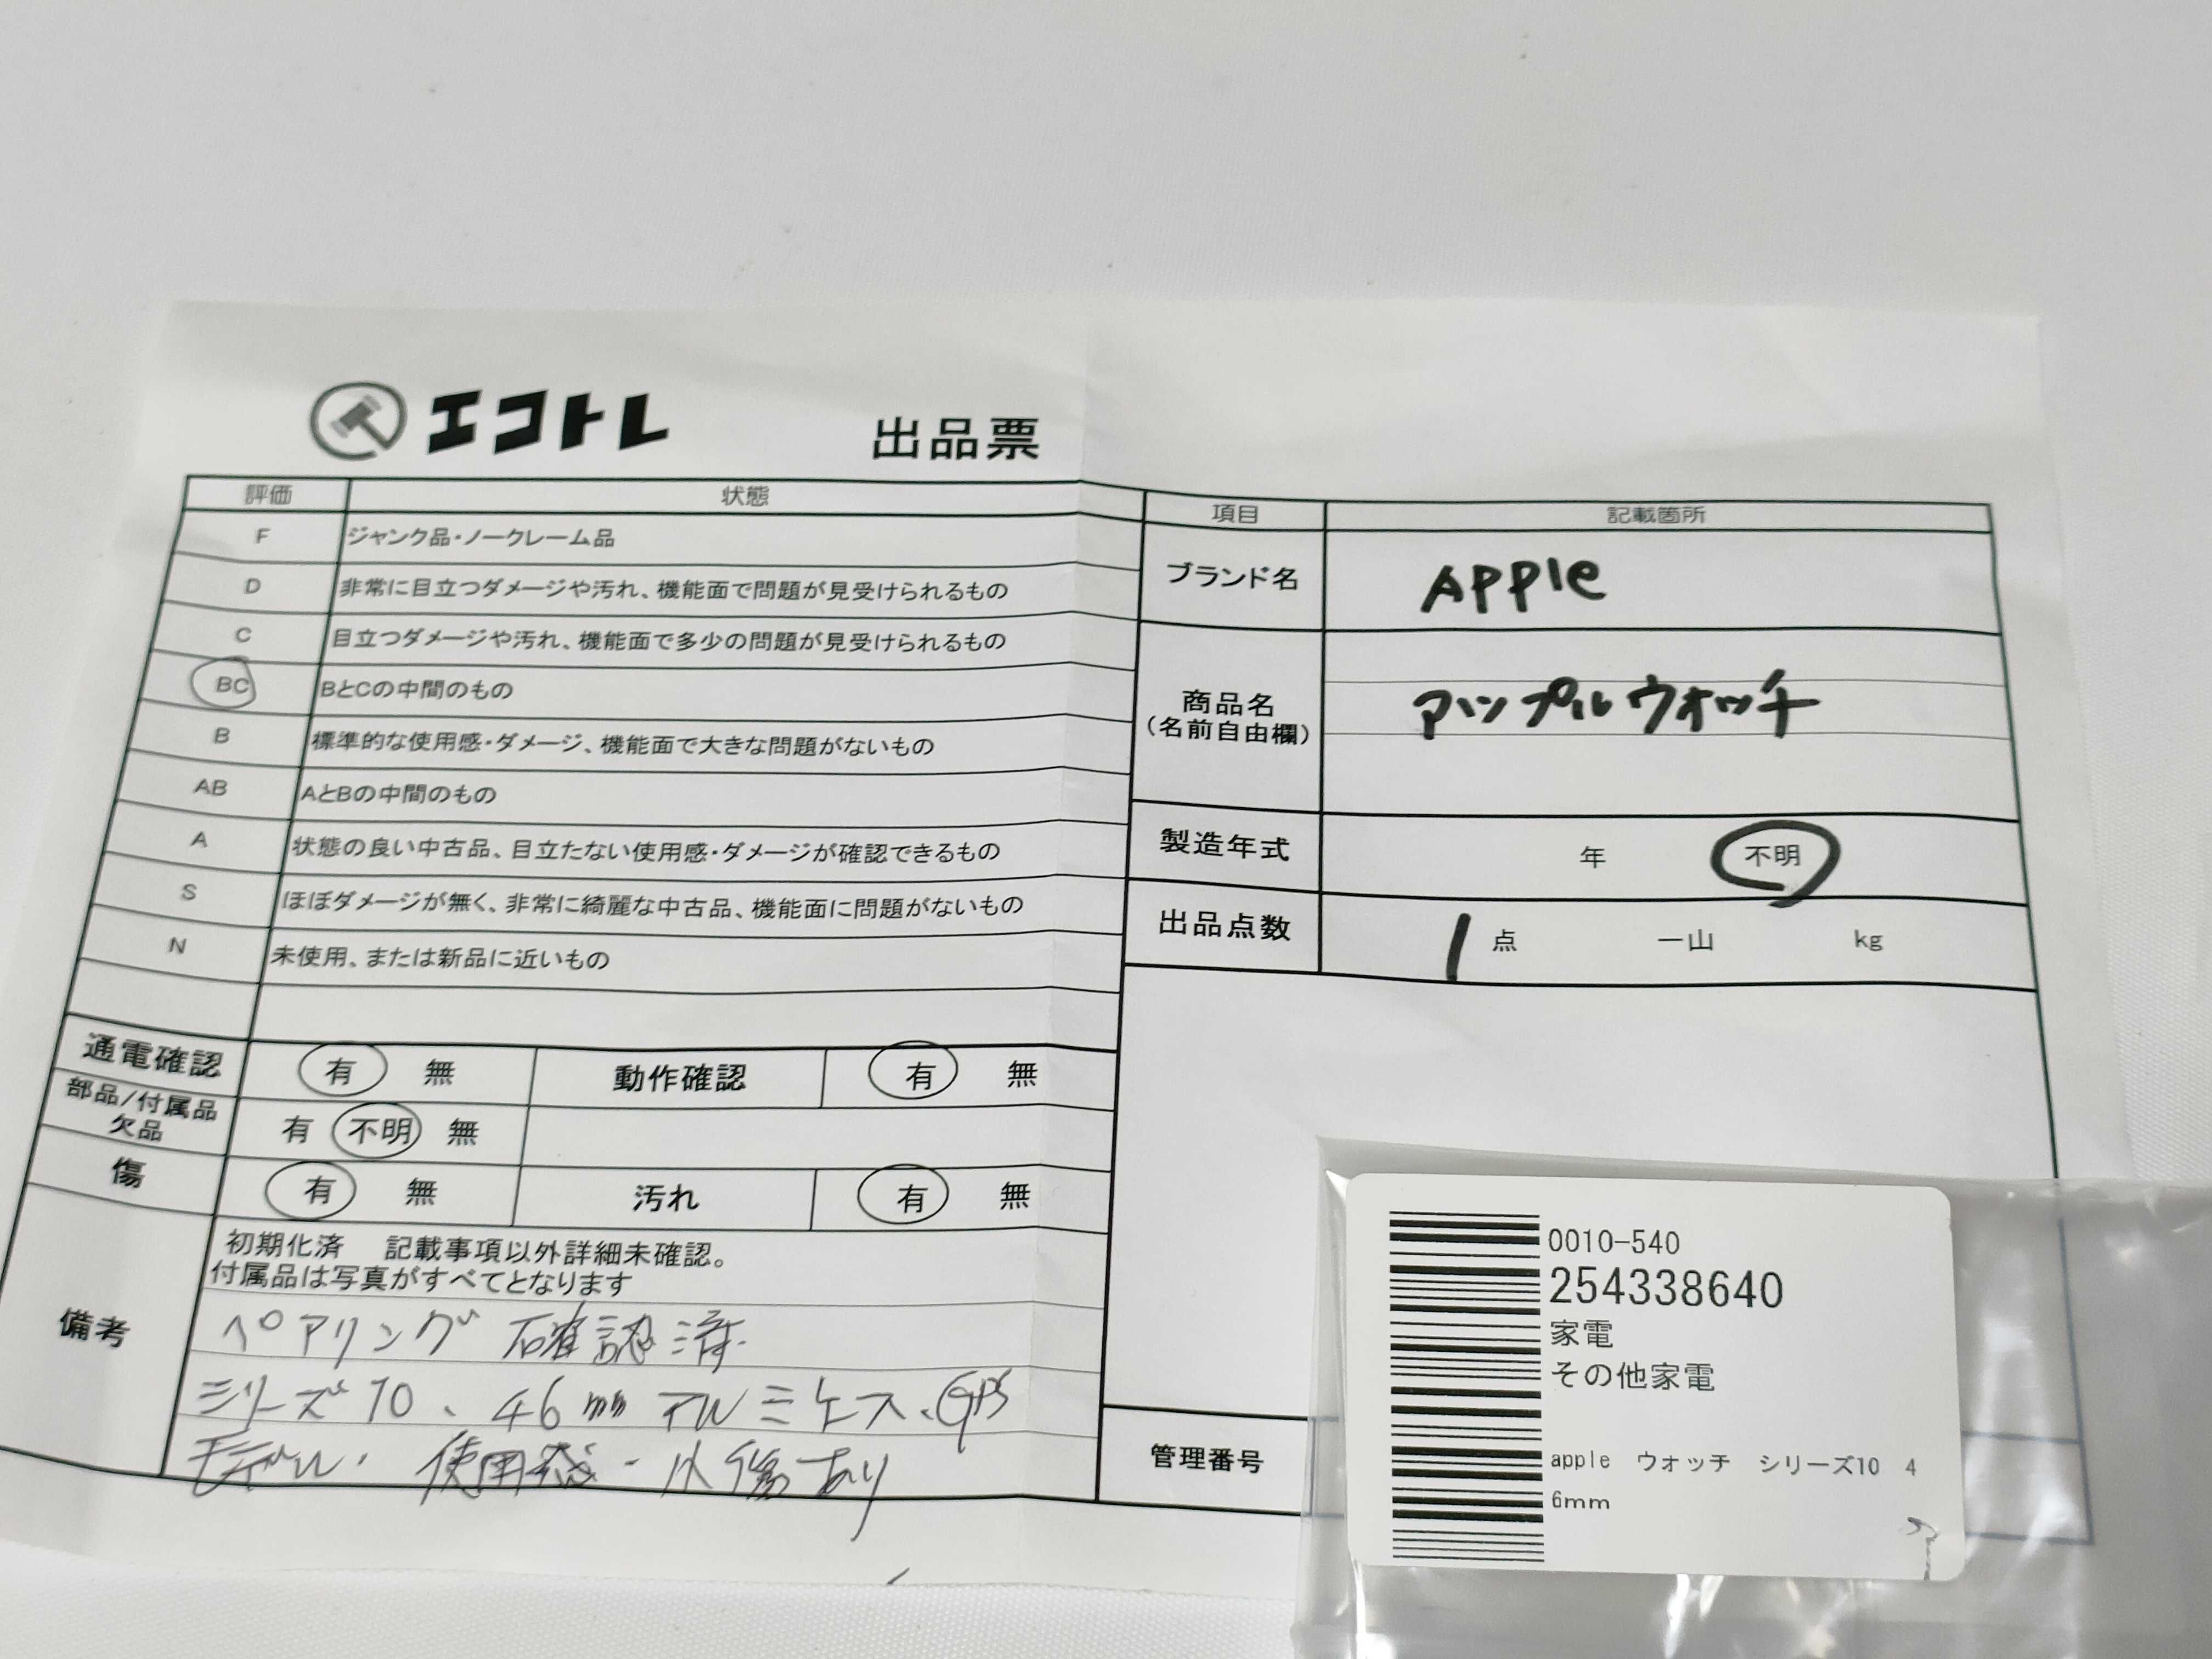 エコトレ 出品票
評価 状態
F ジャンク品・ノークレーム品
D 非常に目立つダメージや汚れ、機能面で問題が見受けられるもの
C 目立つダメージや汚れ、機能面で多少の問題が見受けられるもの
BC BとCの中間のもの
B 標準的な使用感・ダメージ、機能面で大きな問題がないもの
AB AとBの中間のもの
A 状態の良い中古品、目立たない使用感・ダメージが確認できるもの
S ほぼダメージが無く、非常に綺麗な中古品、機能面に問題がないもの
N 未使用、または新品に近いもの
通電確認 有 無 動作確認 有 無
部品/付属品
欠品 有 不明 無
傷 有 無 汚れ 有 無
備考
初期化済 記載事項以外詳細未確認。
付属品は写真がすべてとなります
ペアリング確認済
シリーズ10、46mmアルミケース、GPS
モデル、使用感・小傷あり
項目 記載箇所
ブランド名 APPle
商品名
(名前自由欄) アップルウォッチ
製造年式 年 不明
出品点数 1 点 一山 kg
管理番号
0010-540
254338640
家電
その他家電
apple ウォッチ シリーズ10 4
6mm